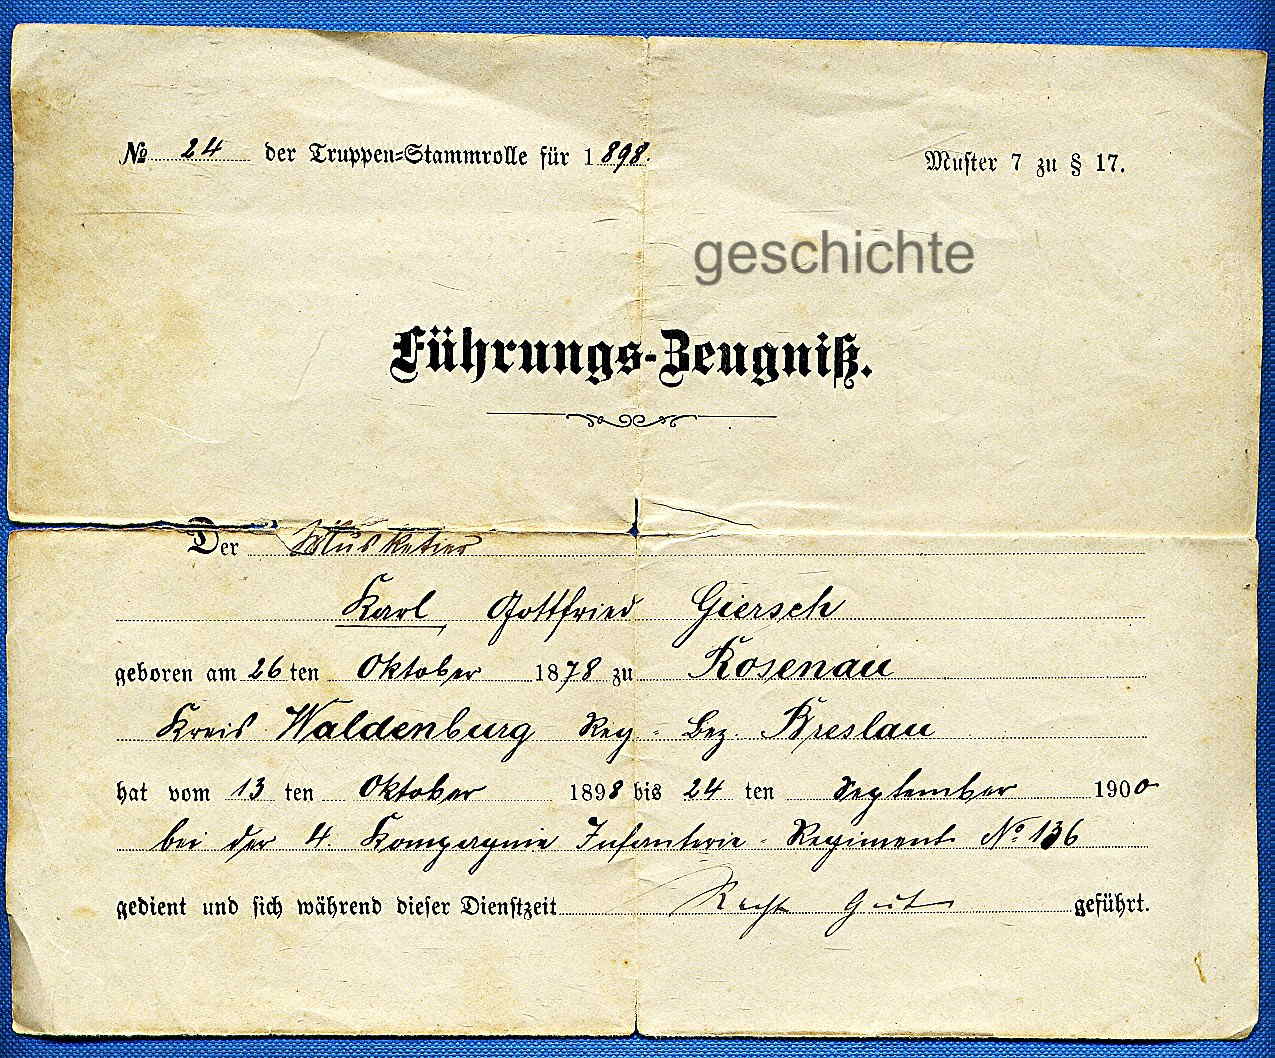 № 24 der Truppen=Stammrolle für 1898.
Muster 7 zu § 17.
geschichte
Führungs-Zeugniß.
Der Musketier
Karl Gottfried Giersch
geboren am 26 ten Oktober 1878 zu Rosenau
Kreis Waldenburg Reg. Bez. Breslau
hat vom 13 ten Oktober 1898 bis 24 ten September 1900
bei der 4. Kompagnie Infanterie-Regiment № 136
gedient und sich während dieser Dienstzeit Recht Gut geführt.